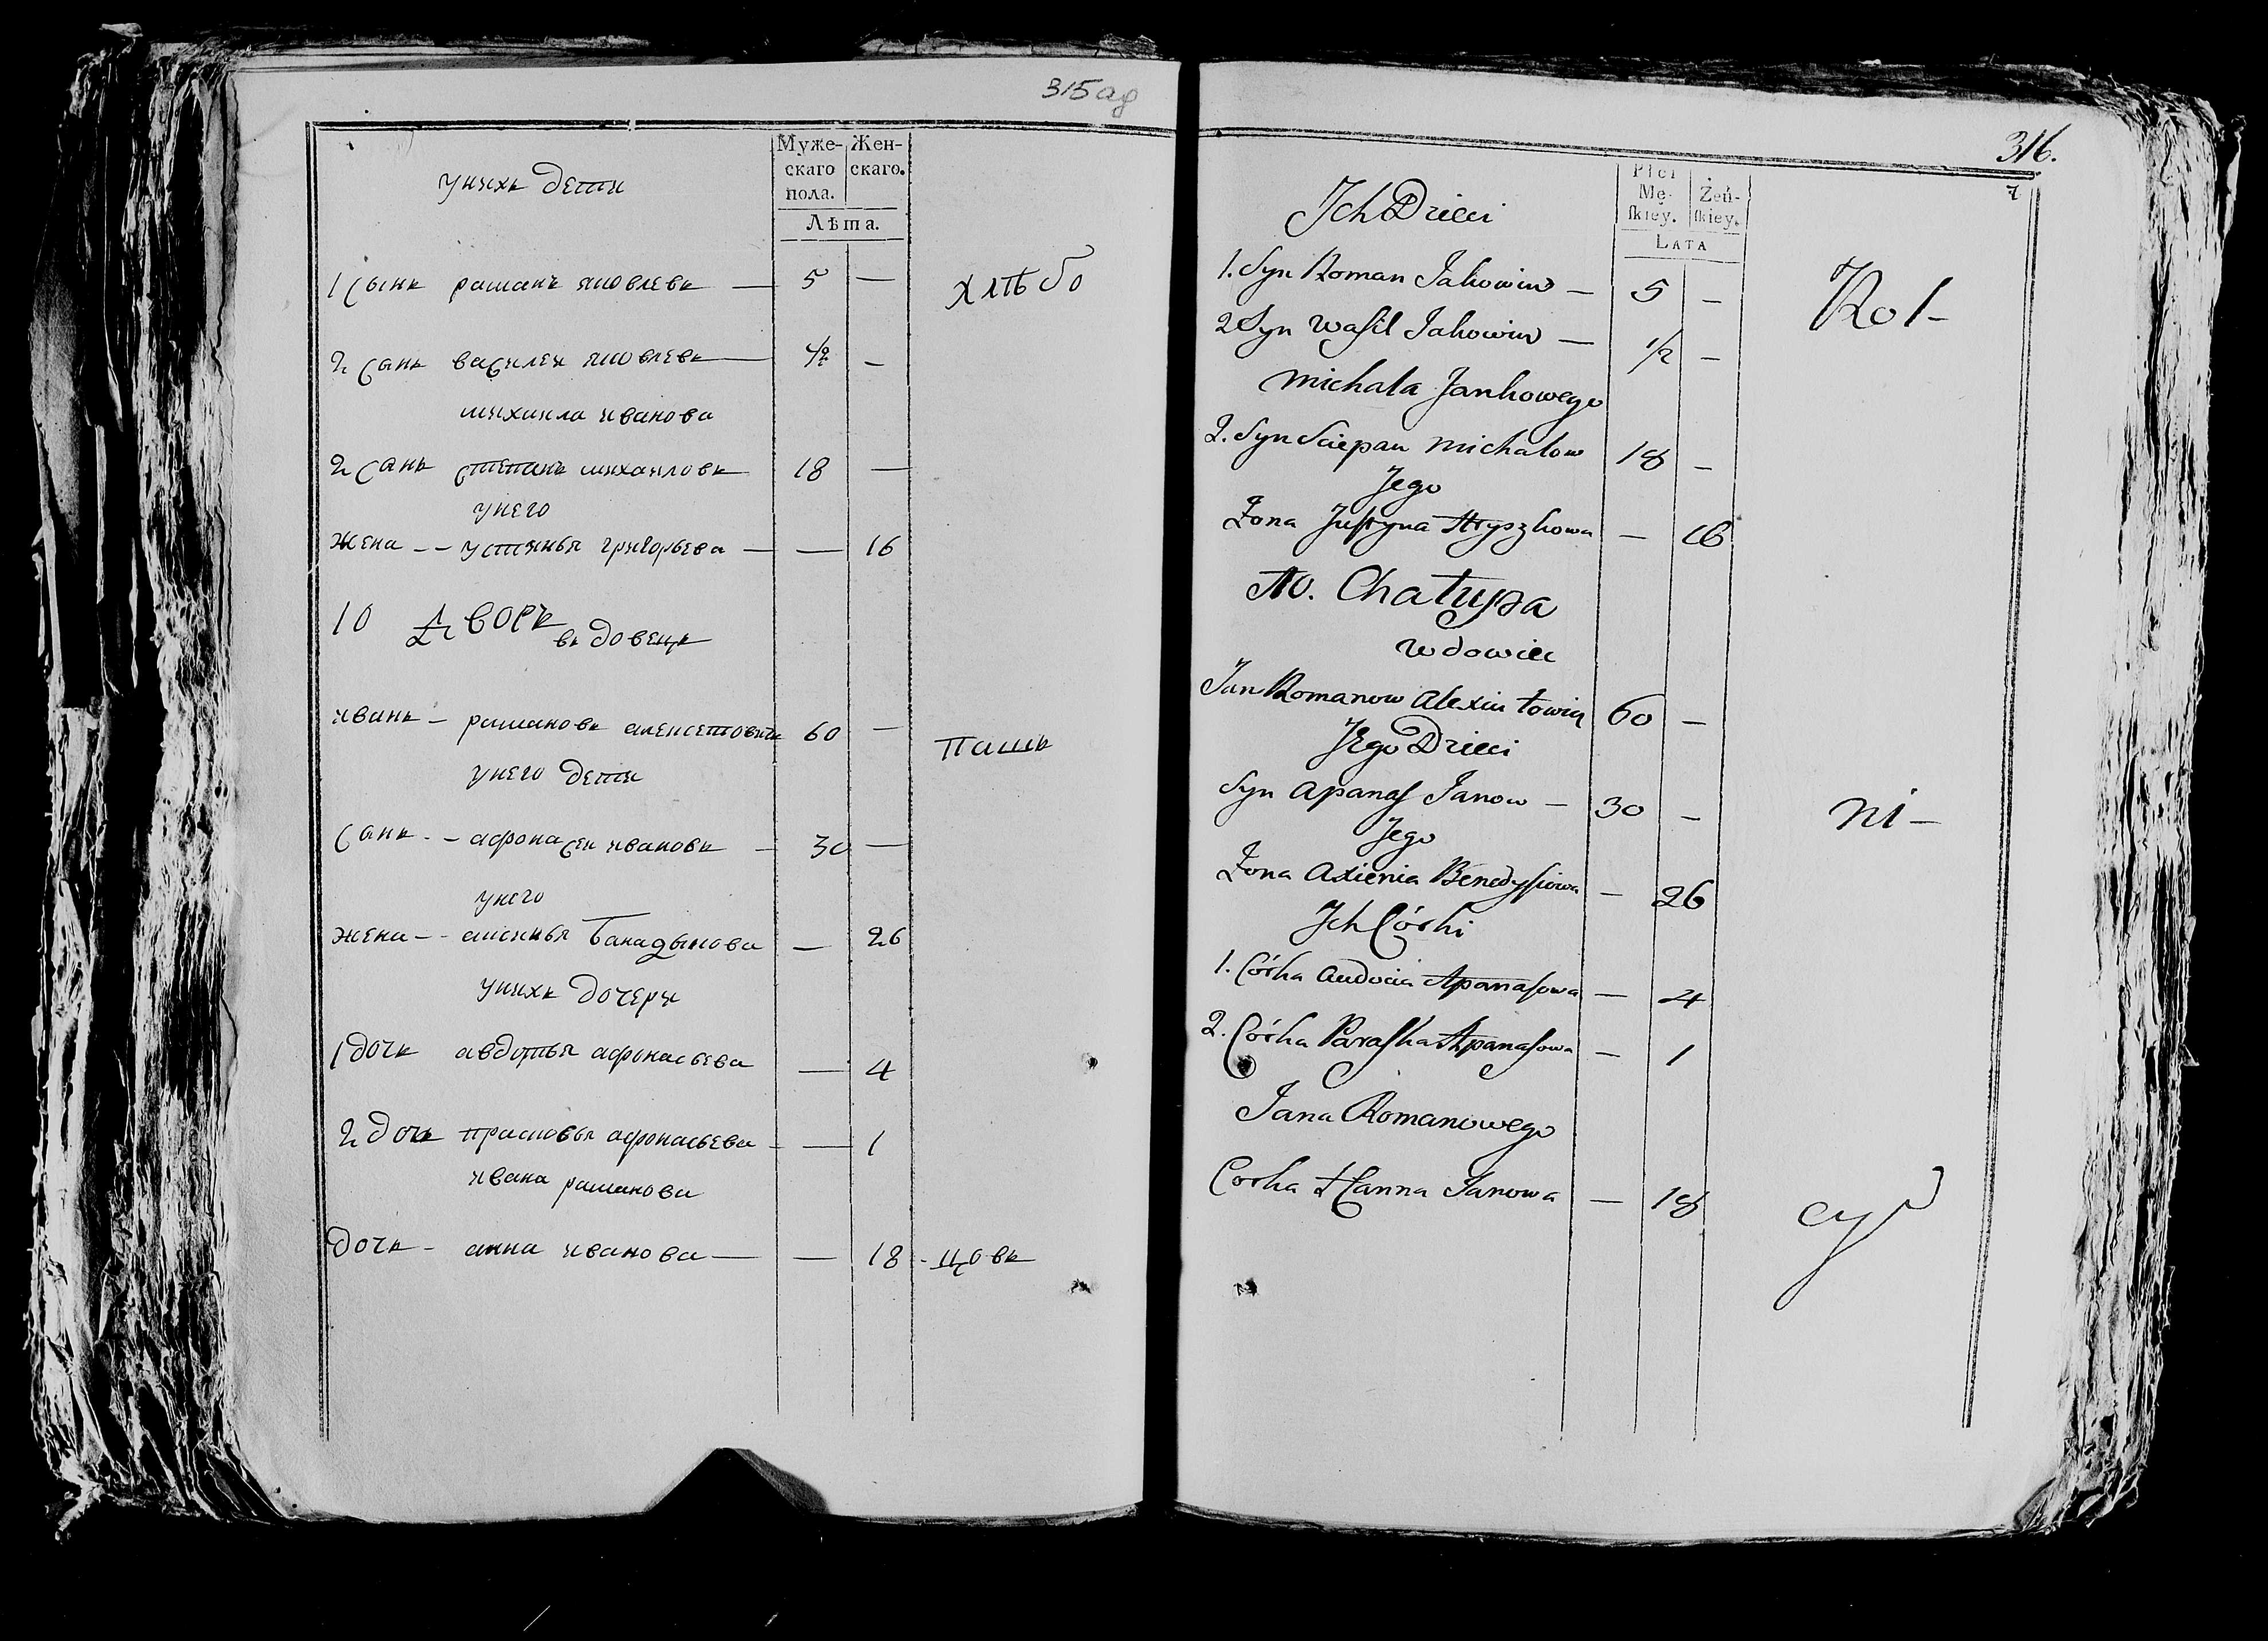 315 аδ
унихъ дети
Муже-
скаго
пола.
Жен-
скаго.
Лѣта.
1 сынъ раманъ яковлевъ — 5 —
хлѣбо
2 сынъ василеи яковлевъ — 1/2 —
михаила иванова
2 сынъ степанъ михаиловъ 18 —
унего
жена — устинья григорьева — — 16
10 Дворъ
вдовецъ
иванъ — рамановъ алексетовичъ 60 —
пашъ
унего дети
сынъ — афонасеи ивановъ — 30 —
унего
жена — аксинья банадыкова — 26
унихъ дочери
1 дочь авдотья афонасьева — 4
2 дочь прасковья афонасьева — — 1
ивана раманова
дочь — анна иванова — — 18 - цовъ
316.
7
Płci
Mę-
ſkiey.
Żeń-
ſkiey.
LATA
Jch Dzieci
1. Syn Roman Jakowiw — 5 —
Rol-
2 Syn Waſil Jakowiw — 1/2 —
Michała Jankowego
2. Syn Sciepan Michałow 18 —
Jego
Żona Juſtyna Hryszkowa — 16
10. Chałupa
Wdowiec
Jan Romanow Alexiutowicz 60 —
Jego Dzieci
Syn Apanaſ Janow — 30 —
ni —
Jego
Żona Axienia Benedyſiowa — 26
Jch Córki
1. Córka Audocia Apanaſowa — 4
2. Córka Paraſka Apanaſowa — 1
Jana Romanowego
Corka Hanna Janowa — 18
cy